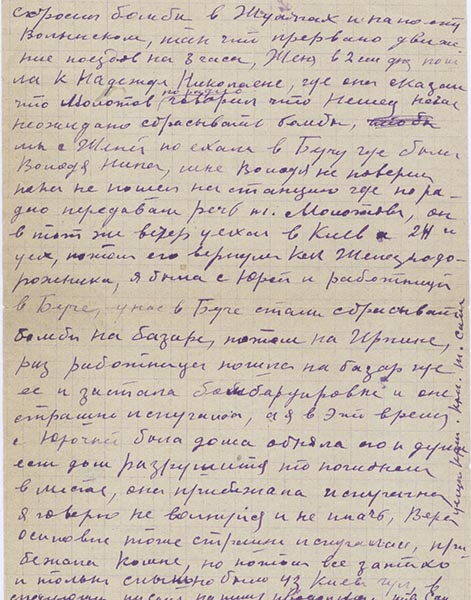 сбросили бомби в Жулянах и на посту
Волынском, так что прервано движе
ние поездов на 3 часа, Женя в 2 ч дня пош
ла к Надежде Николаевне, где она сказала
что Молотов по радио говорил что Немец начал
неожидано сбрасывать бомбы,
мы с Женей поехали в Бучу где были
Володя Нина, мне Володя не поверил
пока не пошел на станцию где по ра-
дио передавали речь т. Молотова, он
в тот же вечер уехал в Киев а 24 и
ушел, потом его вернули как Железнодо-
рожника, я была с Юрой и работницей
в Буче, у нас в Буче стали сбрасывать
бомбы на базаре, потом на Ирпине,
раз работница пошла на базар где
ее и застала бомбардировка и она
страшно испугалась, а я в это время
с Юрочкой была дома обняла его и думаю
если дом разрушится то погибнем
вместе, она прибежала испуганная
я говорю не волнуйся и не плачь, Вера
осиповна тоже страшно испугалась, при
бежала ко мне, но потом все затихло
и только сильно было из Киева гул, в